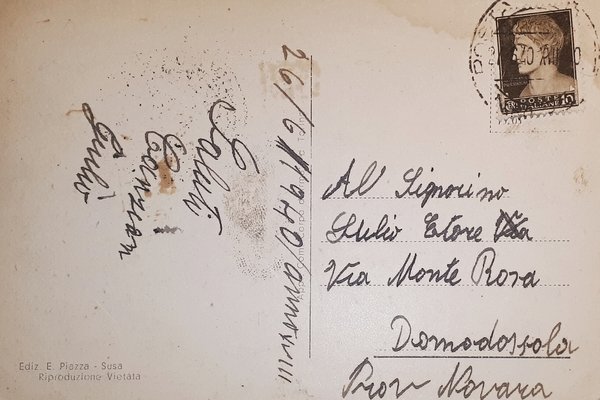 26/6/1940/anno XVIII
Saluti
Giulio
POSTE
ITALIANE 10
Al Signorino
Giulio Etore
Via Monte Rosa
Domodossola
Prov Novara
Ediz. E. Piazza - Susa
Riproduzione Vietata